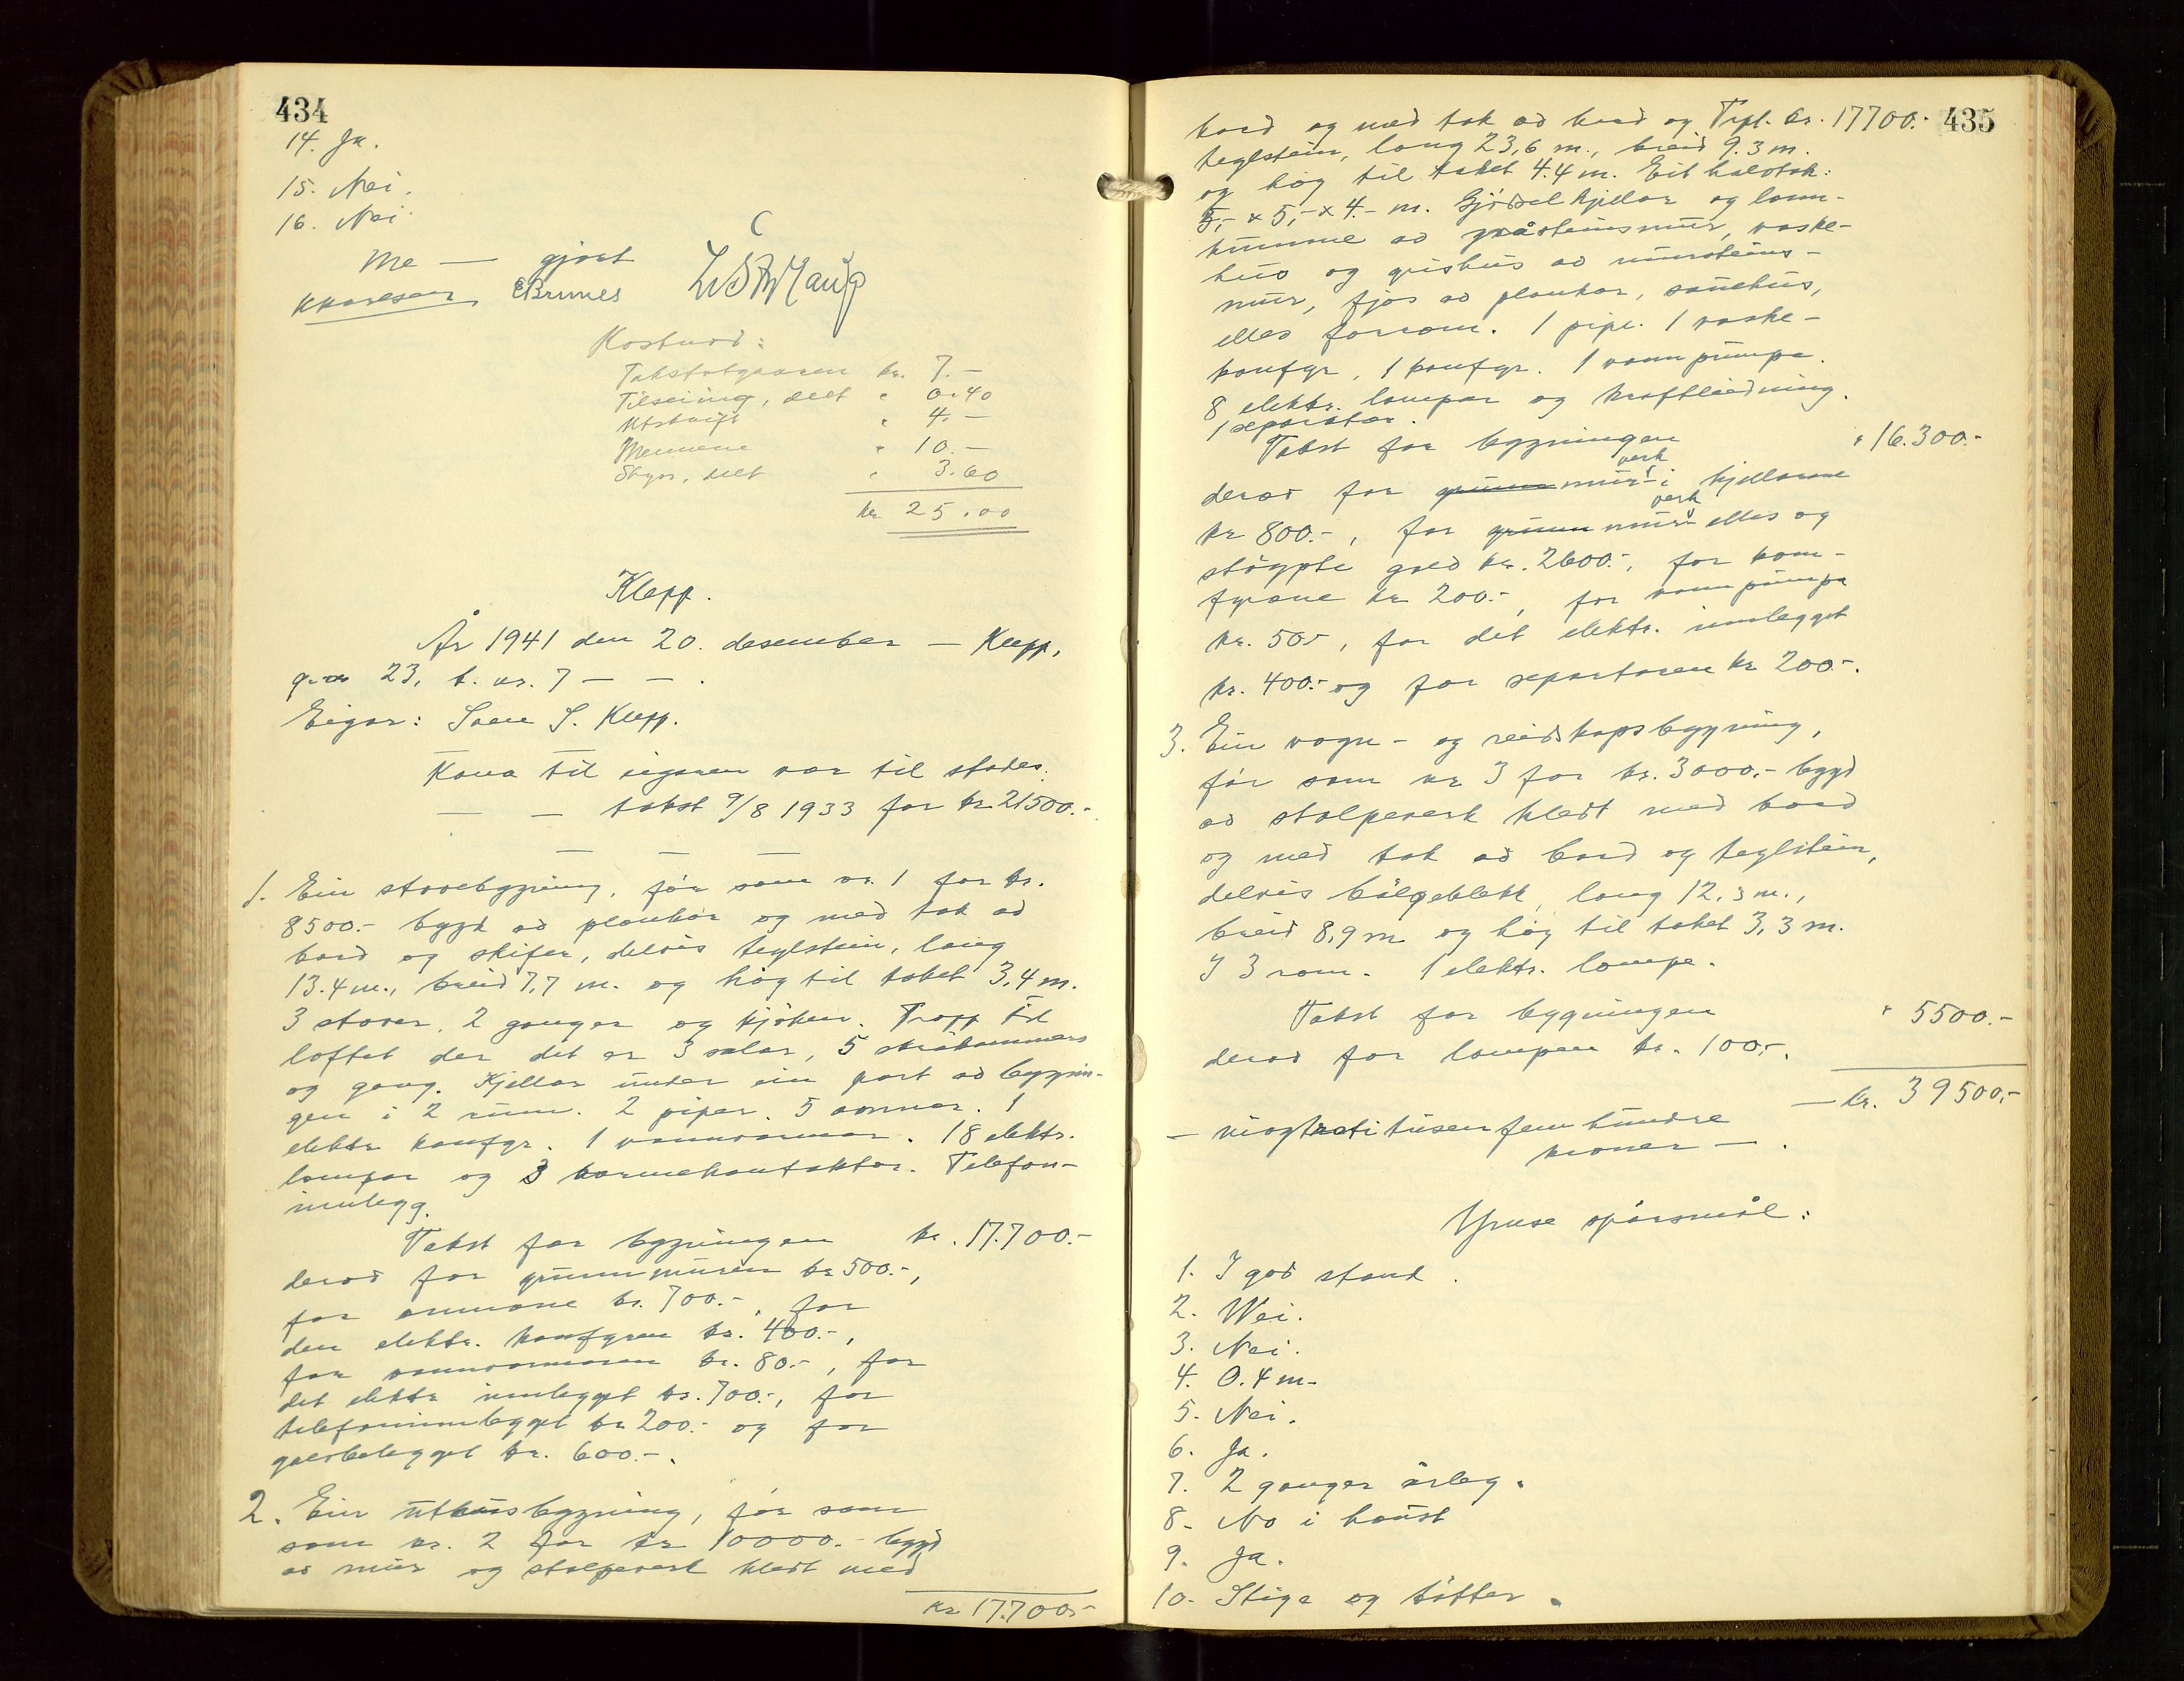 434
14. Ja.
15. Nei.
16. Nei.
Me — gjort
EBrunes
Kostnad:
Takstutgaaven kr. 7.—
Tilseiing, delt " 0.40
Utskrift " 4.—
Mennene " 10.—
Skyss, delt " 3.60
kr 25.00
Klepp.
År 1941 den 20. desember — Klepp,
g. nr 23, b. nr. 7 — — .
Eigar: Sven S. Klepp.
Kona til eigaren var til stades.
— — takst 9/8 1933 for kr. 21500.-
— — —
1. Ein stovebygning, før som nr. 1 for kr.
8500.- bygd av plankar og med tak av
bord og skifer, delvis teglstein, lang
13.4 m., breid 7,7 m. og høg til taket 3,4 m.
3 stover, 2 ganger og kjøken. Tropp til
loftet der det er 3 salar, 5 skråkammers
og gang. Kjellar under ein part av bygnin-
gen i 2 rum. 2 piper. 5 omnar. 1
elektr komfyr. 1 vannvarmar. 18 elektr.
lampar og 3 varmekontaktar. Telefon-
innlegg.
Takst for bygningen kr. 17.700.-
derav for grunnmuren kr 500.-,
for omnane kr. 700.-, for
den elektr. komfyren kr. 400.-,
for vannvarmaren kr. 80.-, for
det elektr innlegget kr. 700.-, for
telefoninnlegget kr 200.- og for
golvbelegget kr. 600.-.
2. Ein uthusbygning, før som
som nr. 2 for kr 10000.- bygd
av mur og stolpeverk kledt med
kr 17.700.-
435
bord og med tak av bord og Trpt. kr. 17700.-
teglstein, lang 23,6 m., breid 9.3 m.
og høg til taket 4.4 m. Eit halvtak:
5,- x 5,- x 4.- m. Gjødselkjellar og lann-
kumme av gråsteinsmur, vaske-
hus og grishus av mursteins-
mur, fjøs av plankar, sauehus,
elles forrom. 1 pipe. 1 vaske-
komfyr, 1 komfyr. 1 vannpumpe.
8 elektr. lampar og kraftleidning.
1 separator.
Takst for bygningen " 16.300.-
derav for grunnmurverk i kjellarane
kr 800.-, for grunnmurverk elles og
støypte golv kr. 2600.-, for kom-
fyrane kr 200.-, for vannpumpa
kr. 50.-, for det elektr. innlegget
kr. 400.- og for separatoren kr 200.-.
3. Ein vogn- og reidskapsbygning,
før som nr 3 for kr. 3000.- bygd
av stolpeverk kledt med bord
og med tak av bord og teglstein,
delvis bølgeblekk, lang 12.3 m.,
breid 8,9 m og høg til taket 3,3 m.
I 3 rom. 1 elektr. lampe.
Takst for bygningen " 5500.-
derav for lampen kr. 100.-.
— kr. 39500,-
— niogtretitusenfemhundre
kroner — .
Ymse spørsmål:
1. I god stand.
2. Nei.
3. Nei.
4. 0.4 m.
5. Nei.
6. Ja.
7. 2 ganger årleg.
8. No i haust
9. Ja.
10. Stige og bøtter.